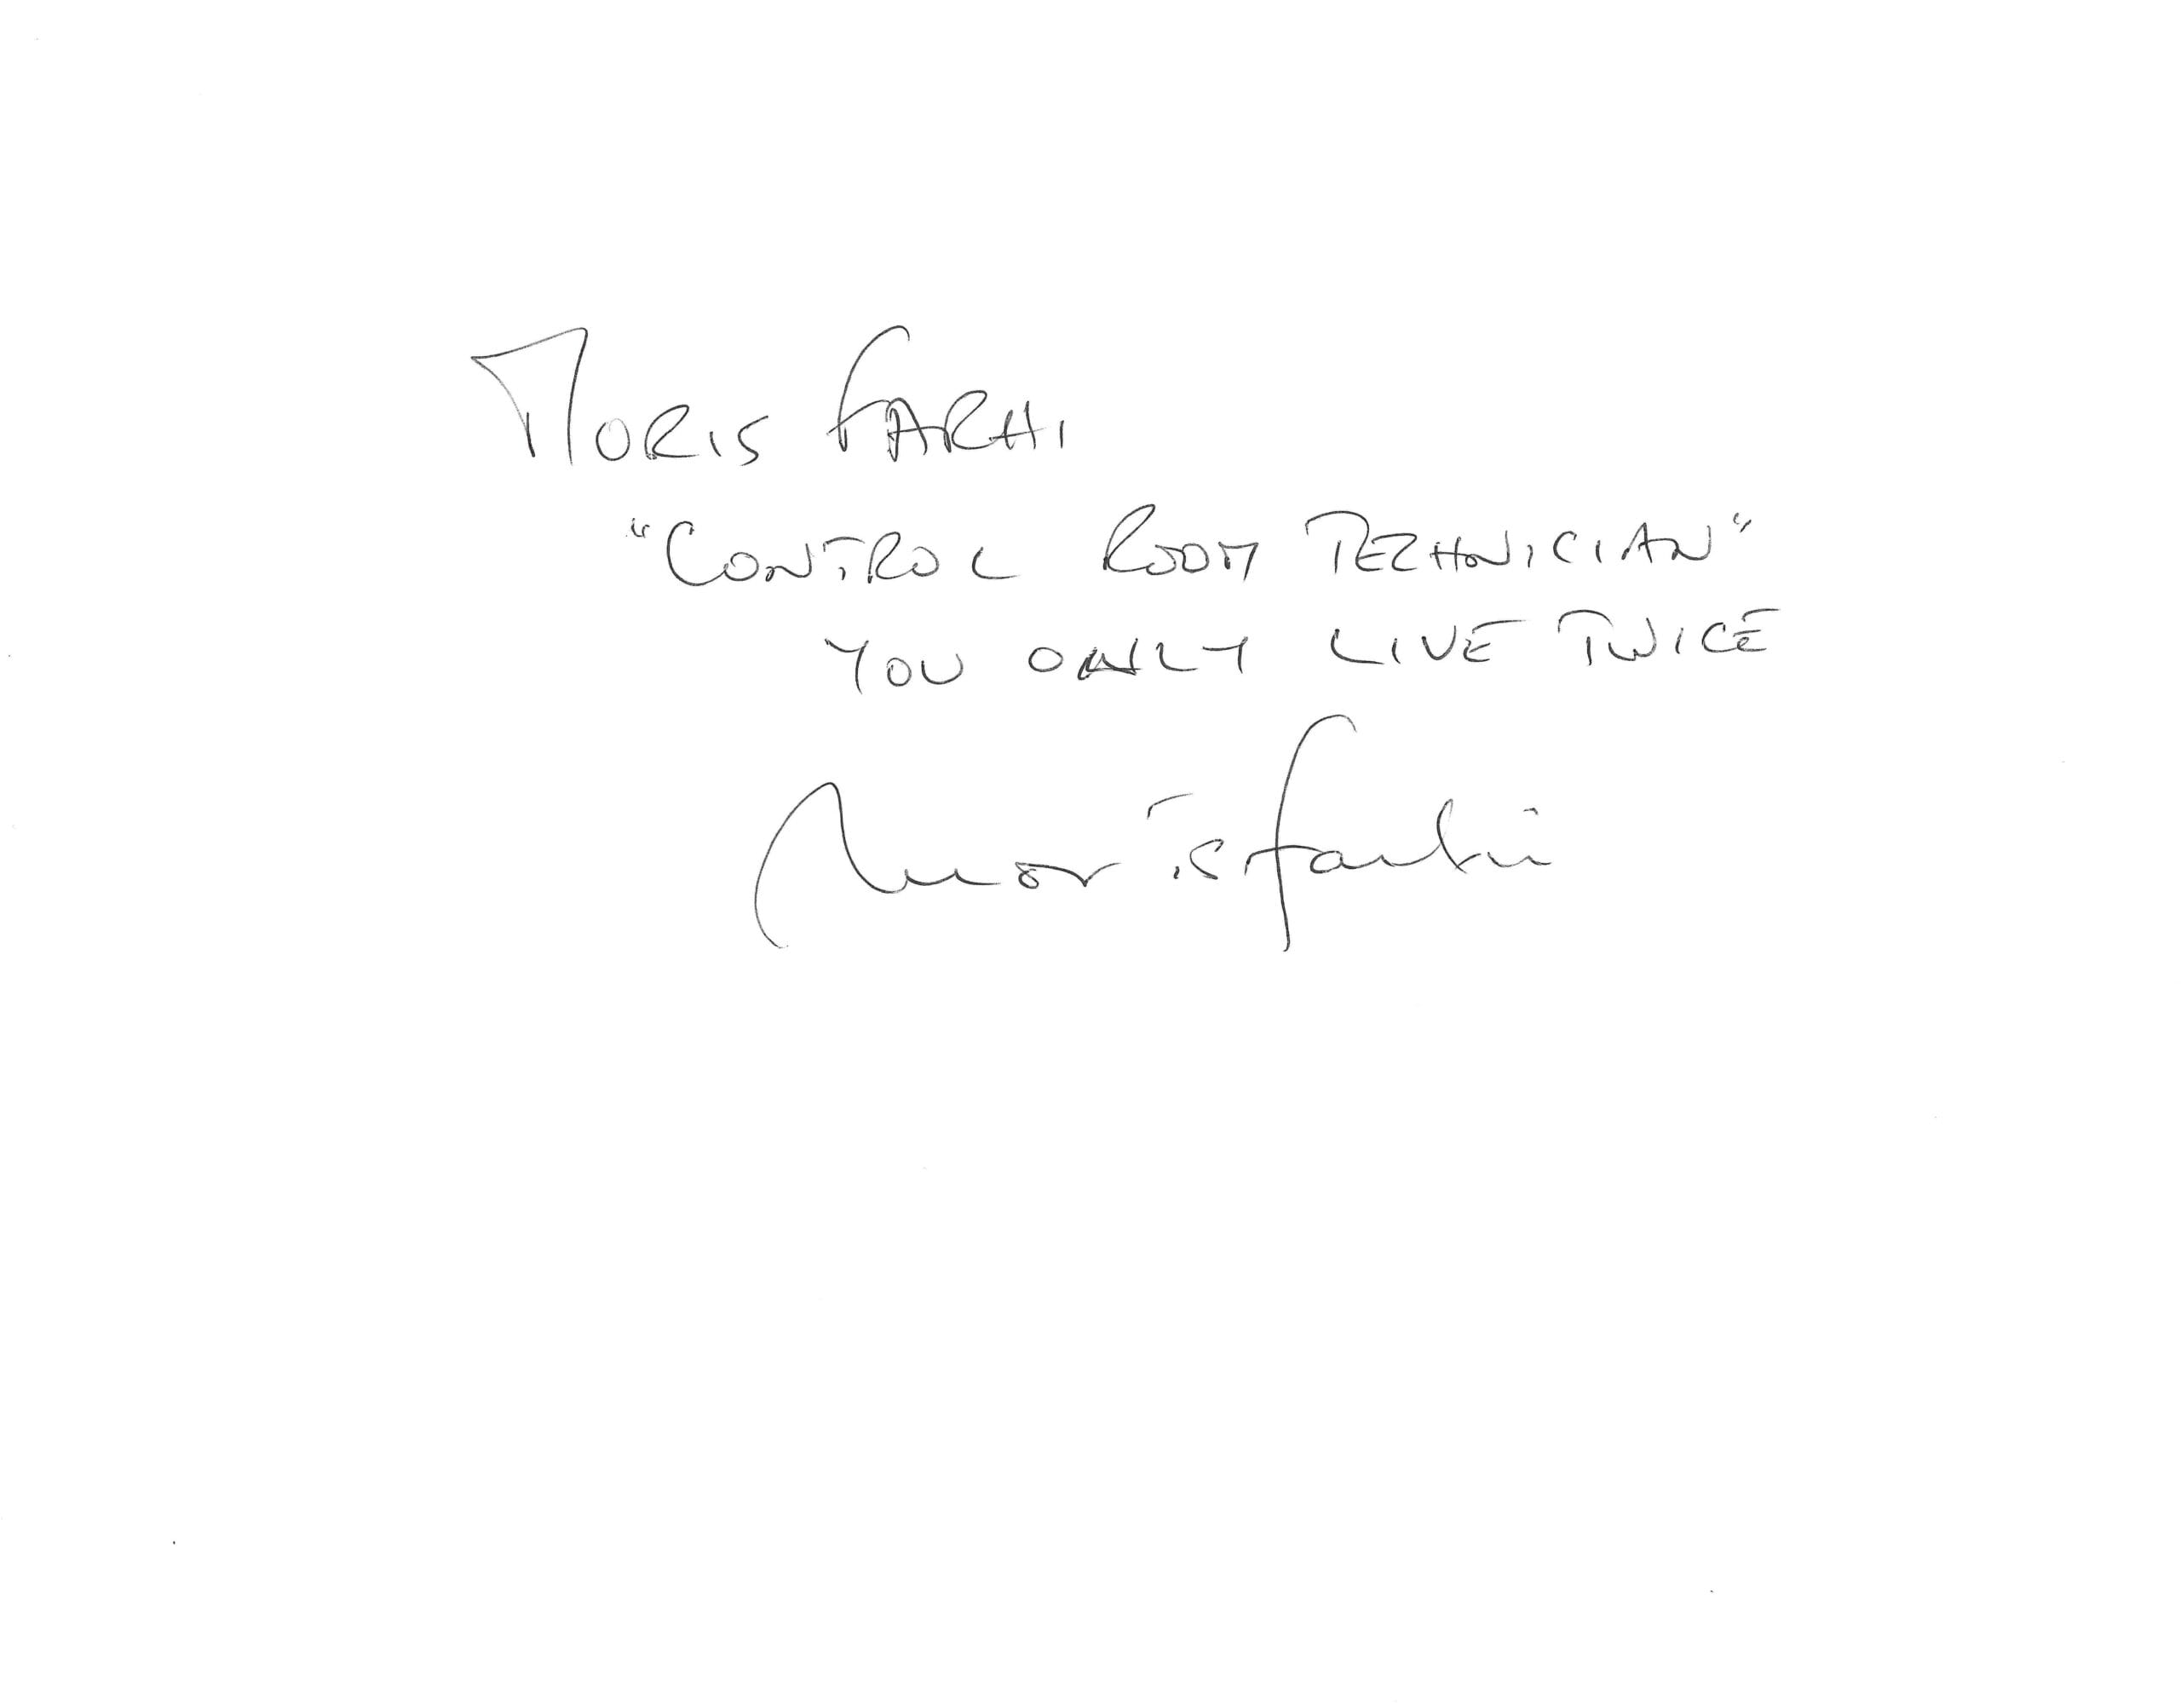 MORIS FARHI
"CONTROL ROOM TECHNICIAN"
YOU ONLY LIVE TWICE
Moris Farhi